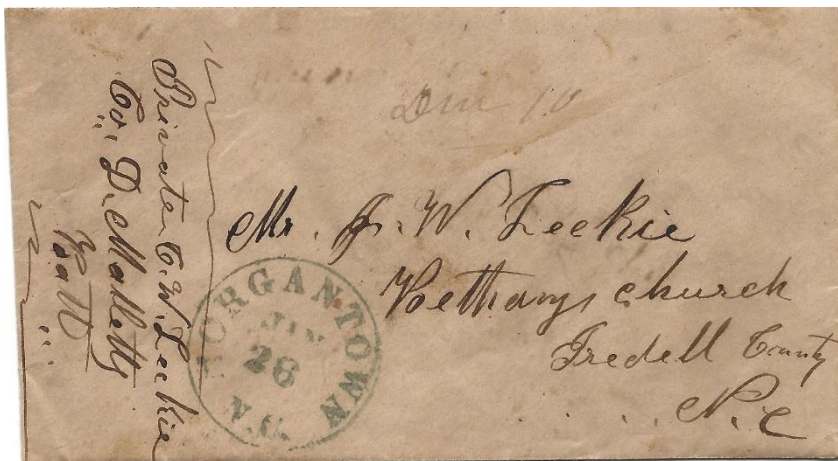 Private C. W. Leckie
Co. D. Malletts
Batt
Due 10
Mr. J. W. Leckie
Bethany church
Iredell County
N.C
MORGANTOWN
JAN
26
N.C.